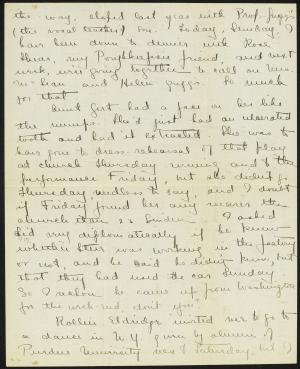 the way, eloped last year with Prof.
(the vocal teacher) Mr. Today, Sunday, I
have been down to dinner with Rose
my Poughkeepsie friend, and next
week, we're going together to call on Mrs.
and Helen Griggs. So much
for that.
Aunt Gert had a face on her like
the mumps. She'd just had an ulcerated
tooth and had it extracted. She was to
have gone to dress-rehearsal of that play
at church Thursday evening and to the
performance Friday, but she didn't go
Thursday needless to say, and I doubt
if Friday found her any nearer the
church than 23 Linden. I asked
did very diplomatically if he knew
whether was working in the factory
or not, and he said he didn't know, but
that they had used the car Sunday.
So I reckon he came up from Washington
for the week-end don't you?
Rollin Eldridge invited me to go to
a dance in N.Y. given by alumni of
Purdue University next Saturday, but I